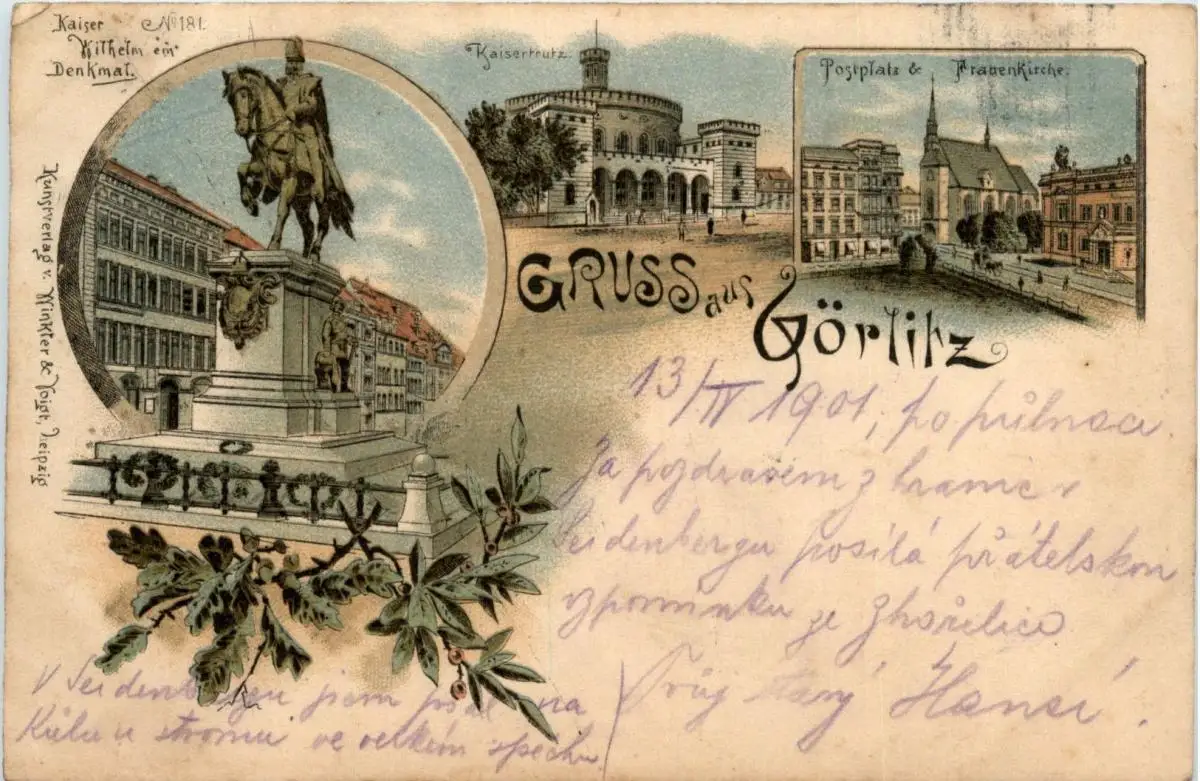 Kaiser № 181.
Wilhelm ein
Denkmal.
Kaisertrutz.
Postplatz & Frauenkirche.
Kunstverlag v. Winkler & Voigt, Leipzig
GRUSS aus
Görlitz
13/IV 1901, po půlnoci
Za pozdravem z hranic v
Seidenbergu posílá přátelskou
vzpomínku ze Zhořelice
Tvůj starý Hansí.
V Seidenbergu jsem psal na
Kůlu u stromu ve velkém spěchu.